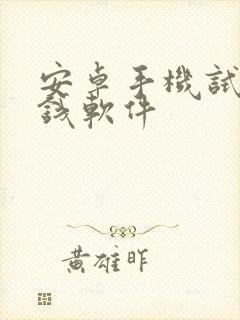 安卓手機試
錢軟件
黃雄昨